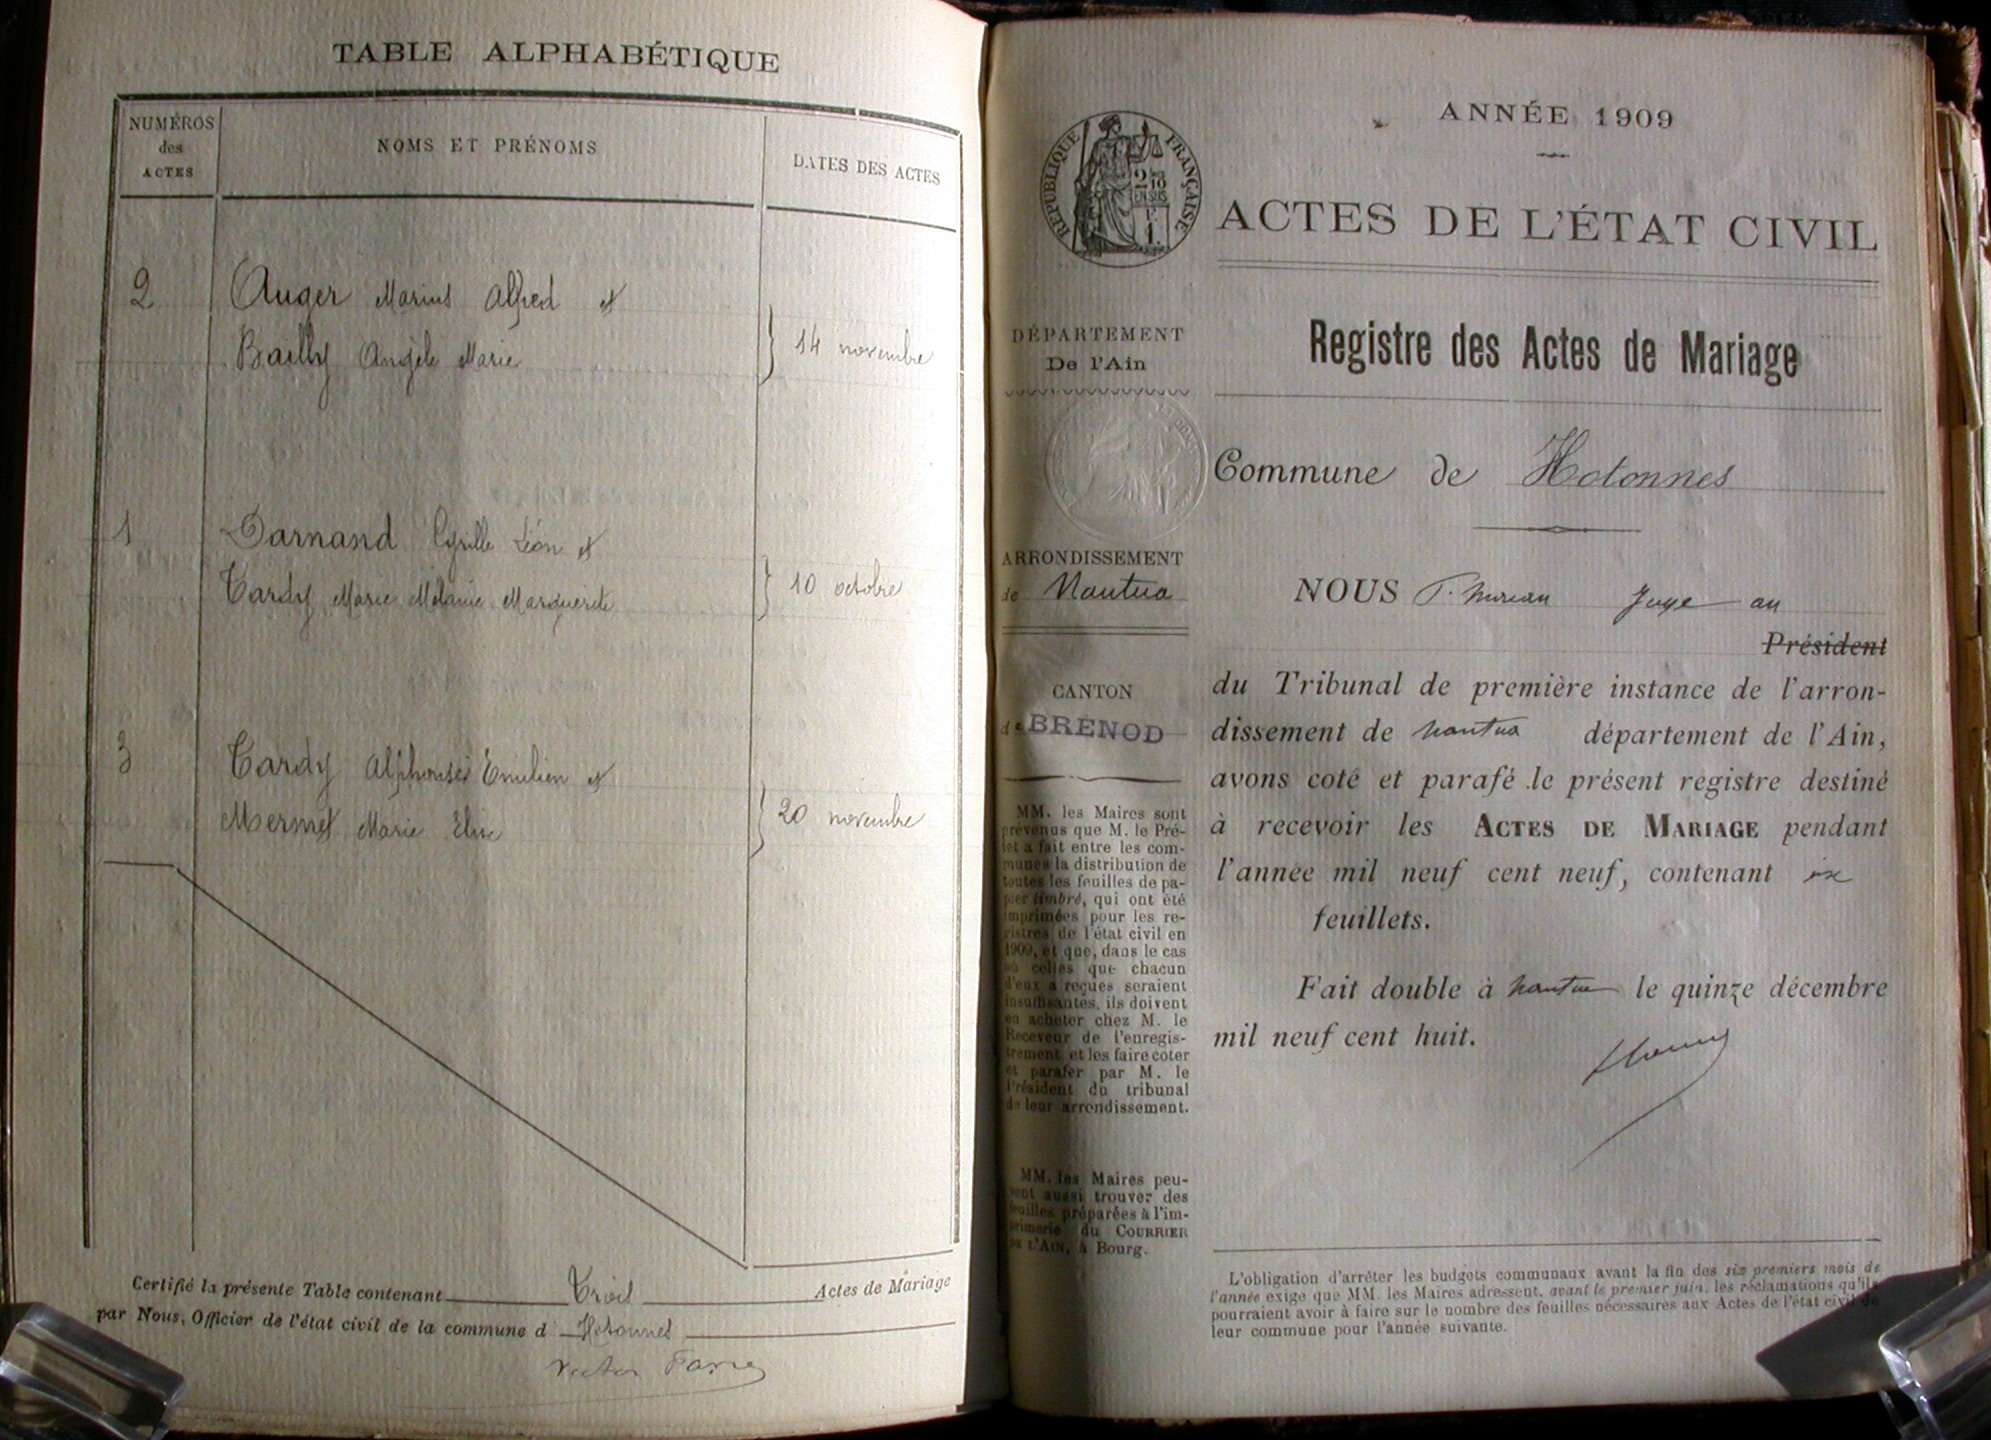 TABLE ALPHABÉTIQUE
NUMÉROS
des
ACTES
NOMS ET PRÉNOMS
DATES DES ACTES
2
Auger Marius Alfred et
Bailly Angèle Marie
14 novembre
1
Darnand Cyrille Léon et
Tardy Marie Mélanie Marguerite
10 octobre
3
Tardy Alphonse Emilien et
Mermet Marie
20 novembre
Certifié la présente Table contenant Trois Actes de Mariage
par Nous, Officier de l'état civil de la commune d Hotonnes
Victor
ANNÉE 1909
RÉPUBLIQUE FRANÇAISE
2/10
EN SUS
ACTES DE L'ÉTAT CIVIL
DÉPARTEMENT
De l'Ain
Registre des Actes de Mariage
Commune de Hotonnes
ARRONDISSEMENT
de Nantua
CANTON
de BRENOD
MM. les Maires sont
prévenus que M. le Pré-
fet a fait entre les com-
munes la distribution de
toutes les feuilles de pa-
pier timbré, qui ont été
imprimées pour les re-
gistres de l'état civil en
1909, et que, dans le cas
où celles que chacun
d'eux a reçues seraient
insuffisantes, ils doivent
en acheter chez M. le
Receveur de l'enregis-
trement et les faire coter
et parafer par M. le
Président du tribunal
de leur arrondissement.
MM. les Maires peu-
vent aussi trouver des
feuilles préparées à l'im-
primerie du COURRIER
DE L'AIN, à Bourg.
NOUS Juge au
Président
du Tribunal de première instance de l'arron-
dissement de Nantua département de l'Ain,
avons coté et parafé le présent registre destiné
à recevoir les ACTES DE MARIAGE pendant
l'année mil neuf cent neuf, contenant
feuillets.
Fait double à Nantua le quinze décembre
mil neuf cent huit.
L'obligation d'arrêter les budgets communaux avant la fin des six premiers mois de
l'année exige que MM. les Maires adressent, avant le premier juin, les réclamations qu'ils
pourraient avoir à faire sur le nombre des feuilles nécessaires aux Actes de l'état civil de
leur commune pour l'année suivante.